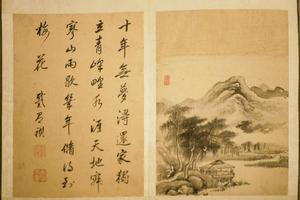 十年無夢得還家獨
立青峰野水涯天地寂
寥山雨歇幾生修得到
梅花